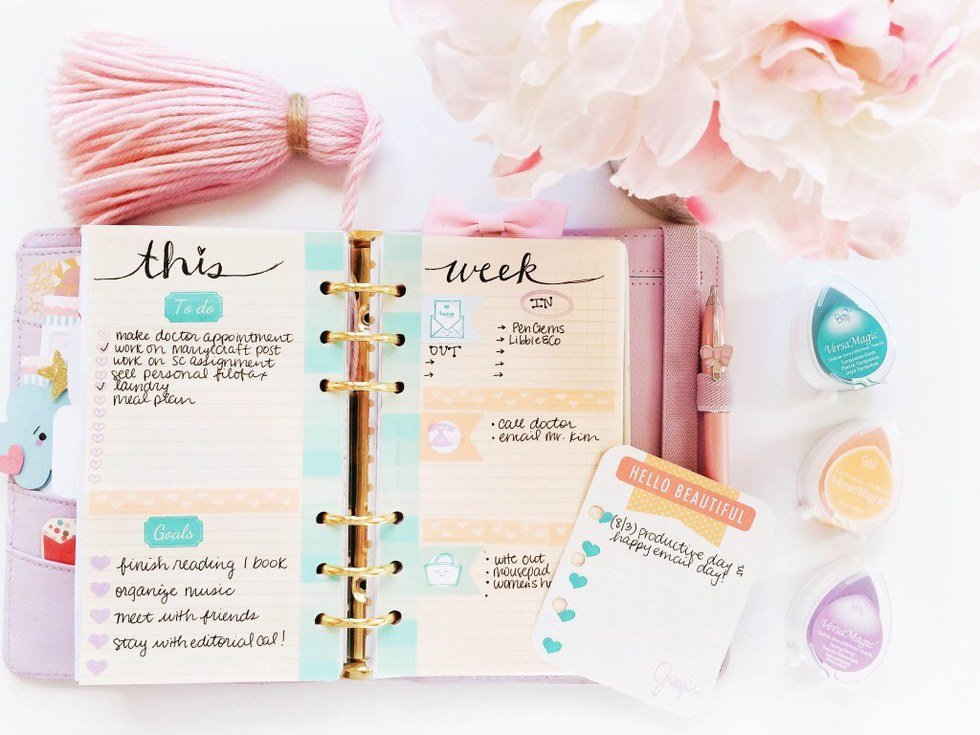 this
To do
make doctor appointment
work on marrylcraft post
work on SC assignment
sell personal filofax
laundry
meal plan
Goals
finish reading 1 book
organize music
meet with friends
stay with editorial cal!
week
happy
IN
→ PenGems
→ Libbie&Co
→
→
OUT
→
→
• call doctor
• email Mr. Kim
• wite out
• mousepad
• womens
HELLO BEAUTIFUL
(8/3) productive day &
happy email day!
VersaMagic
Turquoise Gem
VersaMagic
VersaMagic